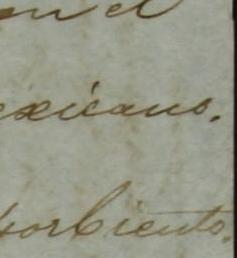 en el
exicano.
sorbiento.